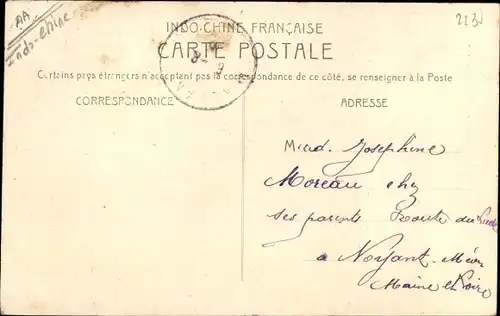 AA
Indo-Chine
213
INDO-CHINE FRANÇAISE
CARTE POSTALE
Certains pays étrangers n'acceptant pas la correspondance de ce côté, se renseigner à la Poste
CORRESPONDANCE
ADRESSE
Mad. Joséphine
Moreau chez
ses parents Route du Lude
a Noyant-Méon
Maine et Loire